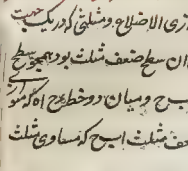 ازی الاضلاع و مثلثی که در یک جهت
آن سطح ضعف مثلث بود همچو سطح
ب ح و میان دو خط ب ح ا ه که متوازی
ضعف مثلث ا ب ح که مساوی مثلث